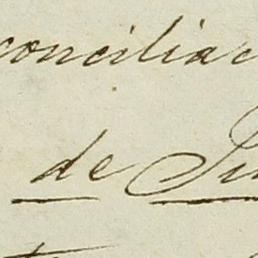 conciliac
de Ju